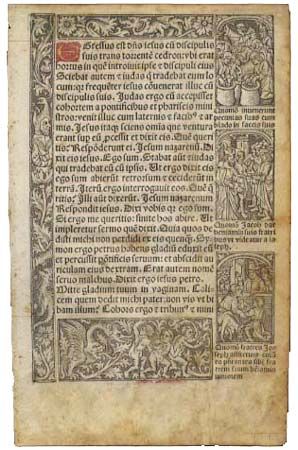 Egressus est dñs iesus cũ discipulis
suis trans torrentẽ cedron: vbi erat
hortus in quẽ introiuit ipse & discipuli eius
Sciebat autem & iudas q̃ tradebat eum lo
cum: q̃ frequẽter iesus cõuenerat illuc cũ
discipulis suis. Judas ergo cũ accepisset
cohortem a pontificibus et phariseis mini
stros: venit illuc cum laternis e facib⁹ & ar
mis. Jesus itaq̃ sciens omnia que ventura
erant sup eũ p̃cessit et dixit eis. Quẽ queri
tis: Respõderunt ei. Jesum nazarenũ. Di
xit eis iesus. Ego sum. Stabat aũt & iudas
qui tradebat eũ cũ ipsis. Ut ergo dixit eis
ego sum abierũt retrorsum & ceciderũt in
terrã. Iterũ ergo interrogauit eos. Quẽ q̃
ritis: Illi aũt dixerũt. Jesum nazarenum
Respondit iesus. Dixi vobis q̃r ego sum.
Si ergo me queritis: sinite hos abire. Ut
impleretur sermo quẽ dixit. Quia quos de
disti michi non perdidi ex eis quenq̃. Sy
mon ergo petrus habens gladiũ eduxit eũ
et percussit pontificis seruum: et abscidit au
riculam eius dextram. Erat autem nomẽ
seruo malchus. Dixit ergo iesus petro.
Mitte gladium tuum in vaginam. Cali
cem quem dedit michi pater: non vis vt bi
bam illum: Cohors ergo & tribun⁹ & mini
Quomõ inuenerunt
pecunias suas cum
blado in saccis suis
Quomõ Jacob
beniamin suis fratri
bus vt videatur a Jo
seph
Quomõ fratres Jo
seph
fra
trem suum beniamin